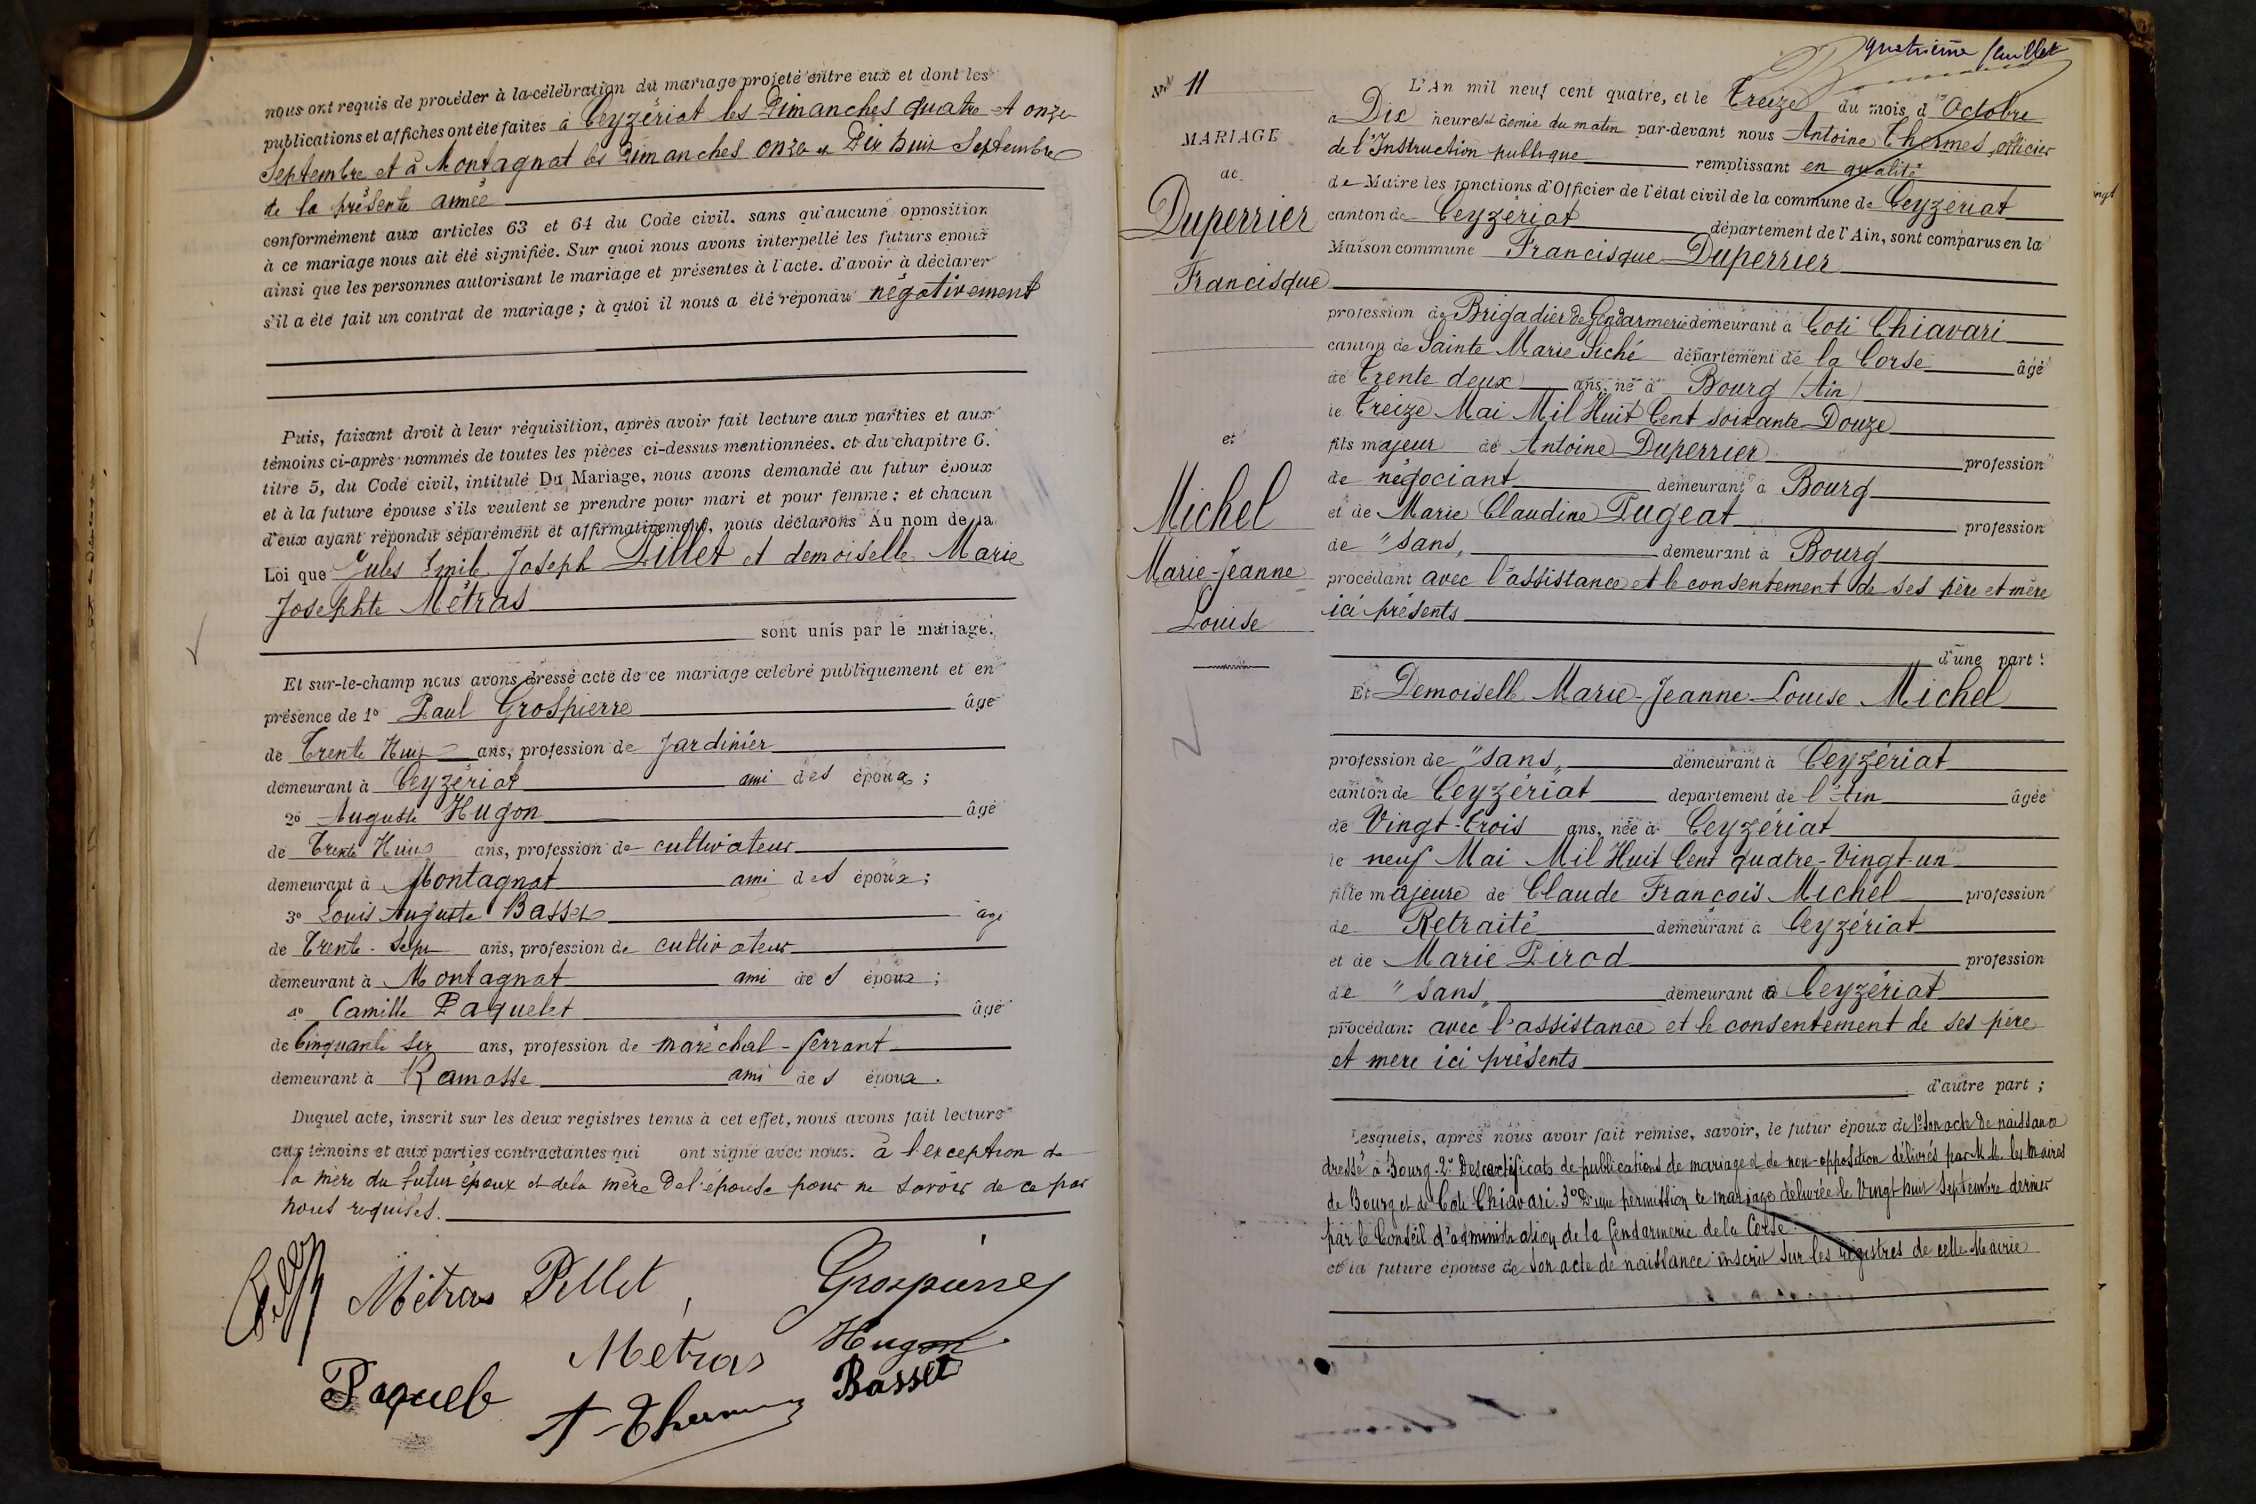 nous ont requis de procéder à la célébration du mariage projeté entre eux et dont les
publications et affiches ont été faites à Ceyzériat les Dimanches quatre et onze
Septembre et à Montagnat les Dimanches onze et Dix huit Septembre
de la présente année
conformément aux articles 63 et 64 du Code civil, sans qu'aucune opposition
à ce mariage nous ait été signifiée. Sur quoi nous avons interpellé les futurs époux
ainsi que les personnes autorisant le mariage et présentes à l'acte, d'avoir à déclarer
s'il a été fait un contrat de mariage ; à quoi il nous a été répondu négativement
Puis, faisant droit à leur réquisition, après avoir fait lecture aux parties et aux
témoins ci-après nommés de toutes les pièces ci-dessus mentionnées, et du chapitre 6.
titre 5, du Code civil, intitulé Du Mariage, nous avons demandé au futur époux
et à la future épouse s'ils veulent se prendre pour mari et pour femme ; et chacun
d'eux ayant répondu séparément et affirmativement, nous déclarons Au nom de la
Loi que Jules Emile Joseph Pillet et demoiselle Marie
Josephte Métras
sont unis par le mariage.
Et sur-le-champ nous avons dressé acte de ce mariage célébré publiquement et en
présence de 1° Paul Grospierre âgé
de Trente Huit ans, profession de Jardinier
demeurant à Ceyzériat ami des époux ;
2° Auguste Hugon âgé
de Trente Huit ans, profession de cultivateur
demeurant à Montagnat ami des époux ;
3° Louis Auguste Basset âgé
de Trente-Sept ans, profession de cultivateur
demeurant à Montagnat ami des époux ;
4° Camille Paquelet âgé
de Cinquante Six ans, profession de maréchal-ferrant
demeurant à Ramasse ami des époux.
Duquel acte, inscrit sur les deux registres tenus à cet effet, nous avons fait lecture
aux témoins et aux parties contractantes qui ont signé avec nous. à l'exception de
la mère du futur époux et de la mère de l'épouse pour ne savoir de ce par
nous requises.
Métras Pillet Grospierre
Métras Hugon
Paquelet A Thermes Basset
quatrième feuillet
N° 11
MARIAGE
de
Duperrier
Francisque
et
Michel
Marie-Jeanne
Louise
L'An mil neuf cent quatre, et le Treize du mois d'Octobre
à Dix heures et demie du matin par-devant nous Antoine Thermes, officier
de l'Instruction publique remplissant en qualité
de Maire les fonctions d'Officier de l'état civil de la commune de Ceyzériat
canton de Ceyzériat département de l'Ain, sont comparus en la
Maison commune Francisque Duperrier
profession de Brigadier de Gendarmerie demeurant à Coti Chiavari
canton de Sainte Marie Siché département de la Corse âgé
de Trente deux ans, né à Bourg (Ain)
le Treize Mai Mil Huit Cent soixante-Douze
fils majeur de Antoine Duperrier profession
de négociant demeurant à Bourg
et de Marie Claudine Pugeat profession
de "sans" demeurant à Bourg
procédant avec l'assistance et le consentement de ses père et mère
ici présents
d'une part :
Et Demoiselle Marie-Jeanne-Louise Michel
profession de "sans" demeurant à Ceyzériat
canton de Ceyzériat département de l'Ain âgée
de Vingt-trois ans, née à Ceyzériat
le neuf Mai Mil Huit Cent quatre-Vingt-un
fille majeure de Claude François Michel profession
de Retraité demeurant à Ceyzériat
et de Marie Pirod profession
de "sans" demeurant à Ceyzériat
procédant avec l'assistance et le consentement de ses père
et mère ici présents
d'autre part ;
Lesquels, après nous avoir fait remise, savoir, le futur époux de 1° Son acte de naissance
dressé à Bourg. 2° Des certificats de publications de mariage et de non-opposition délivrés par M.M. les Maires
de Bourg et de Coti-Chiavari. 3° D'une permission de mariage délivrée le Vingt huit Septembre dernier
par le Conseil d'administration de la Gendarmerie de la Corse.
et la future épouse de Son acte de naissance inscrit sur les registres de cette Mairie